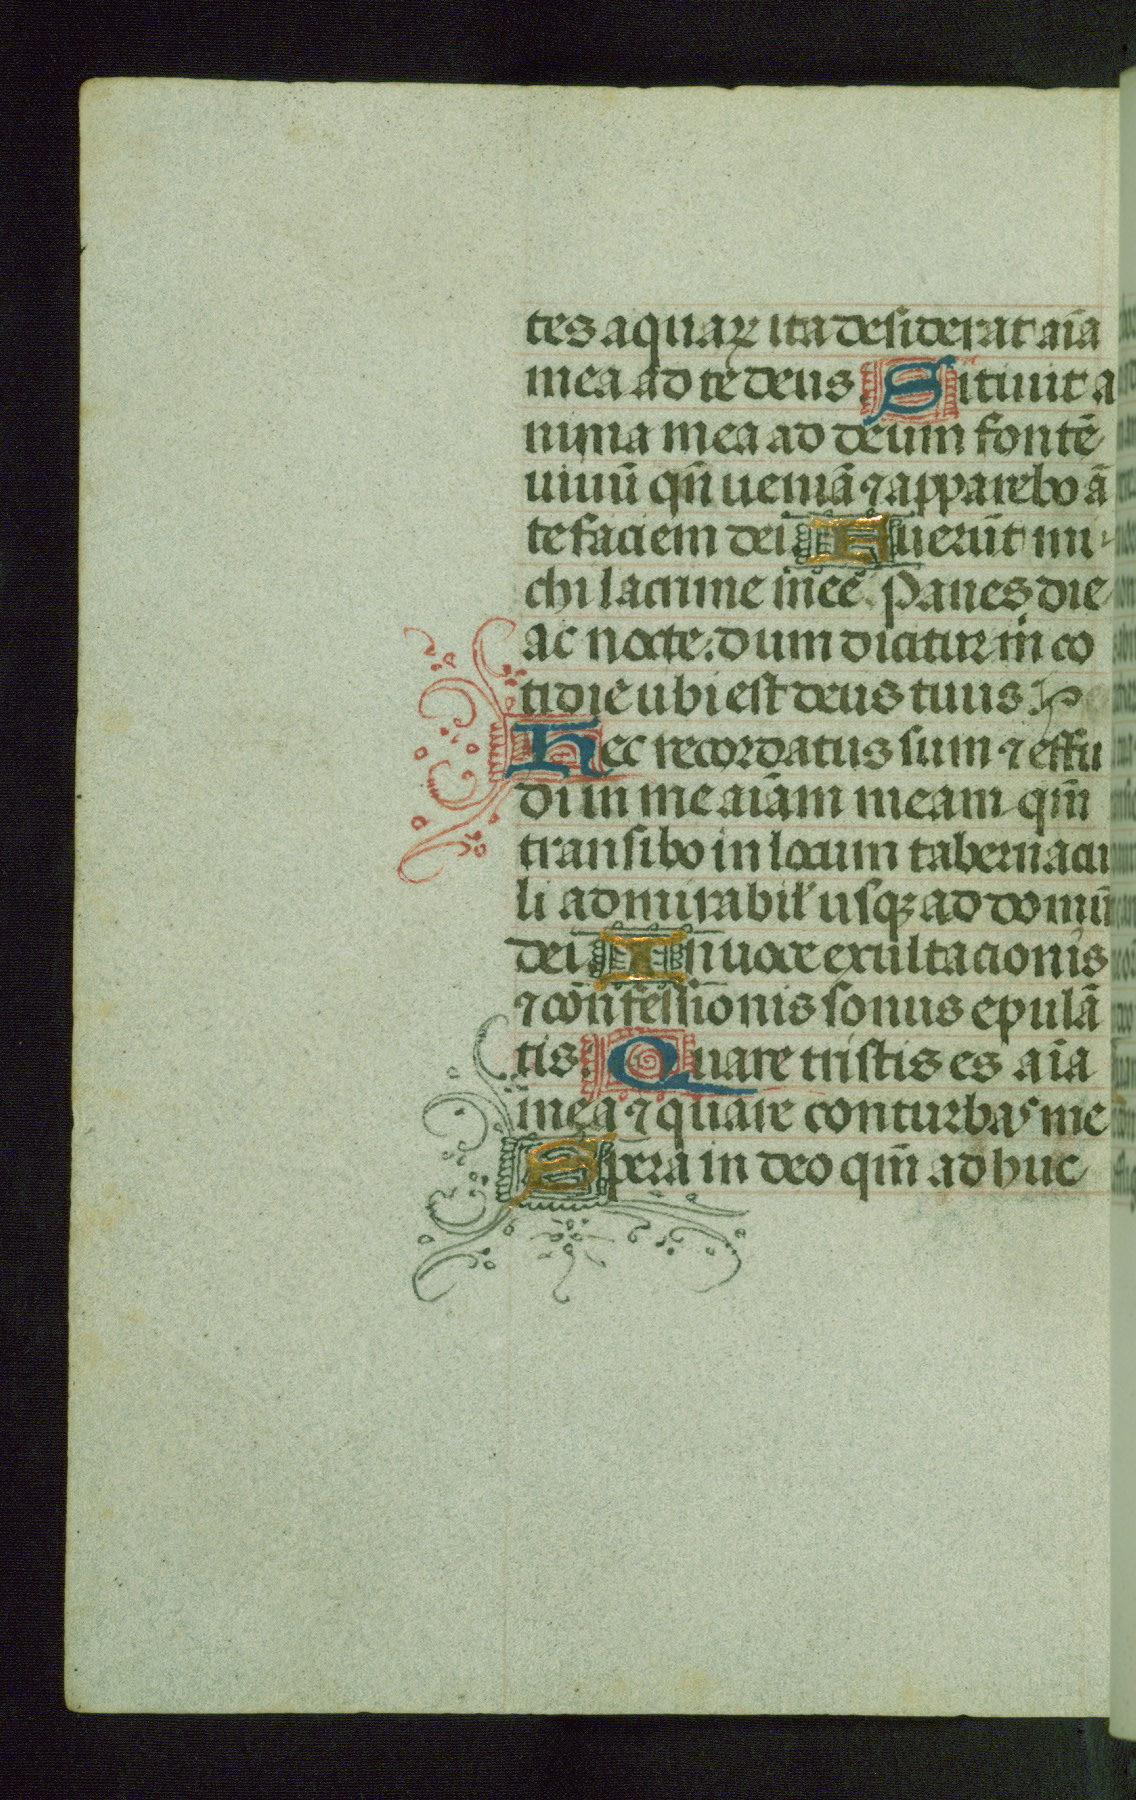 tes aquaꝝ ita desiderat aīa
mea ad te deus. Sitiuit a
nima mea ad deum fontē
uiuū qn̄ ueniā ⁊ apparebo ā
te faciem dei. Fuerūt mi-
chi lacrime mee. Panes die
ac nocte. dum dicitur m̄ co
tidie ubi est deus tuus. h
Hec recordatus sum ⁊ effu
di in me aīam meam qm̄
transibo in locum tabernacu
li admirabil' usqꝫ ad domū
dei. In uoce exultacionis
⁊ cōnfessionis sonus epulā
tis. Quare tristis es aīa
mea ⁊ quare conturbas me
Spera in deo qm̄ ad huc